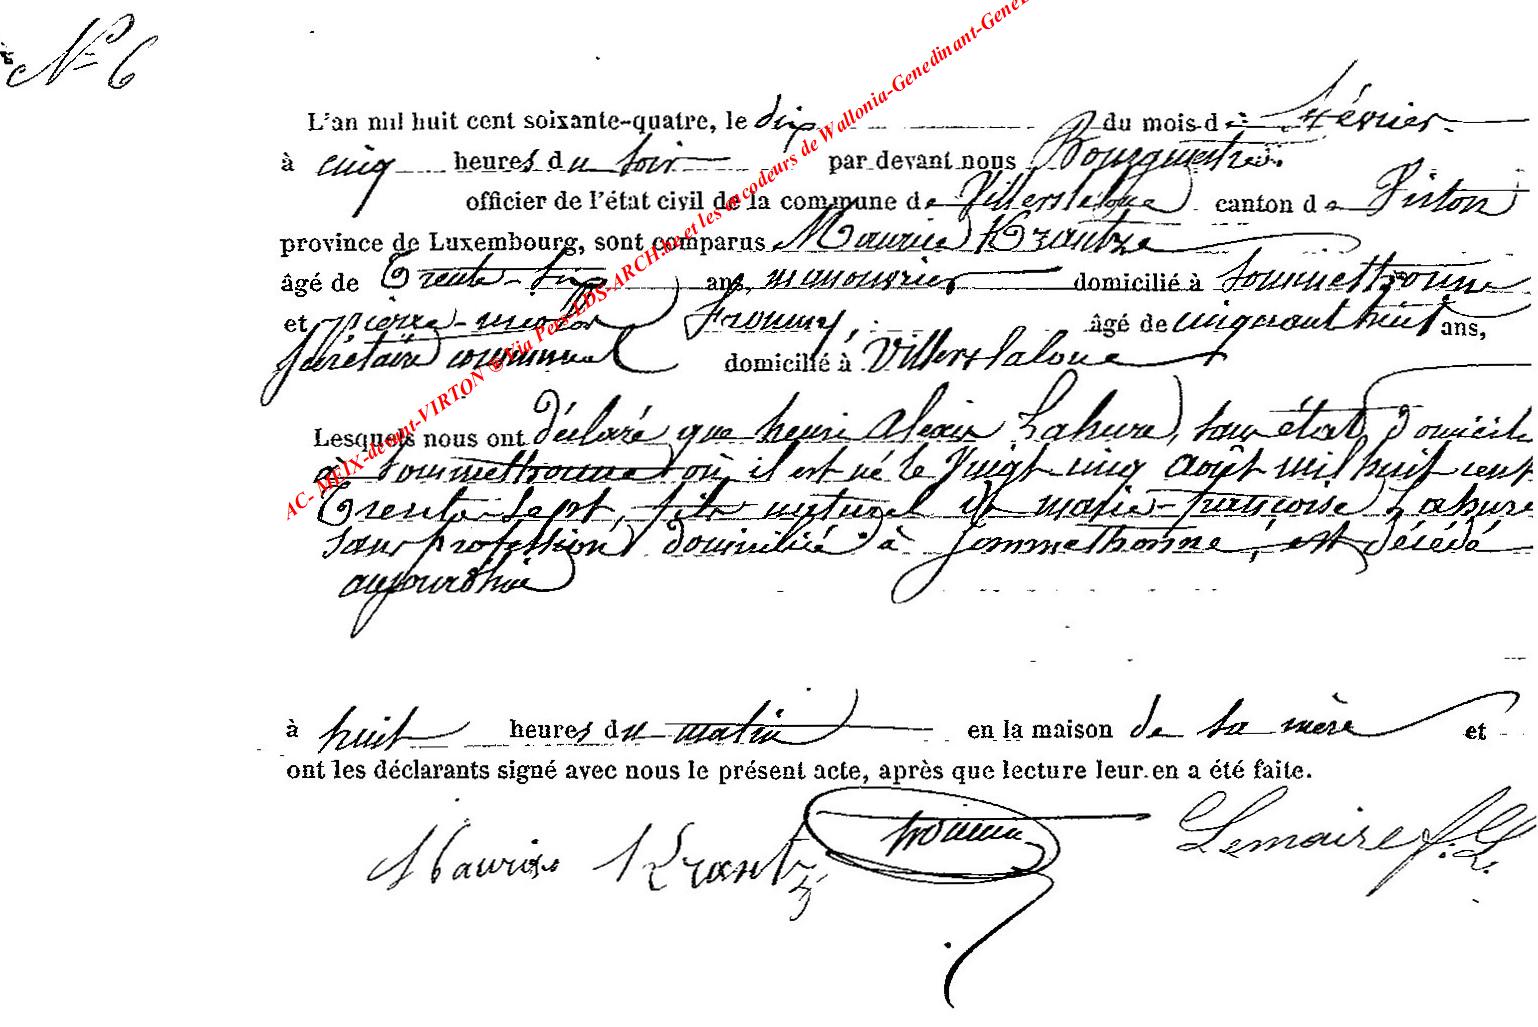 N° 6
L'an mil huit cent soixante-quatre, le dix du mois de février
à cinq heures du soir par devant nous Bourgmestre
officier de l'état civil de la commune de Villers la loue canton de Virton
province de Luxembourg, sont comparus Maurice Krantze
âgé de Trente-six ans, manouvrier domicilié à Sommethonne
et pierre-nicolas âgé de cinquante huit ans,
Secrétaire communal domicilié à Villers la loue
Lesquels nous ont déclaré que henri alexis Lahure, sans état, domicilié
à Sommethonne où il est né le Vingt cinq août mil huit cent
Trente-sept, fils naturel de marie-françoise Lahure
sans profession domiciliée à Sommethonne, est décédé
aujourd'hui
à huit heures du matin en la maison de sa mère et
ont les déclarants signé avec nous le présent acte, après que lecture leur en a été faite.
Maurice Krantz Lemaire f. L.
AC- MEIX-devant-VIRTON ® Via Pers-LDS-ARCH.be et les encodeurs de Wallonia-Genedinant-GeneB